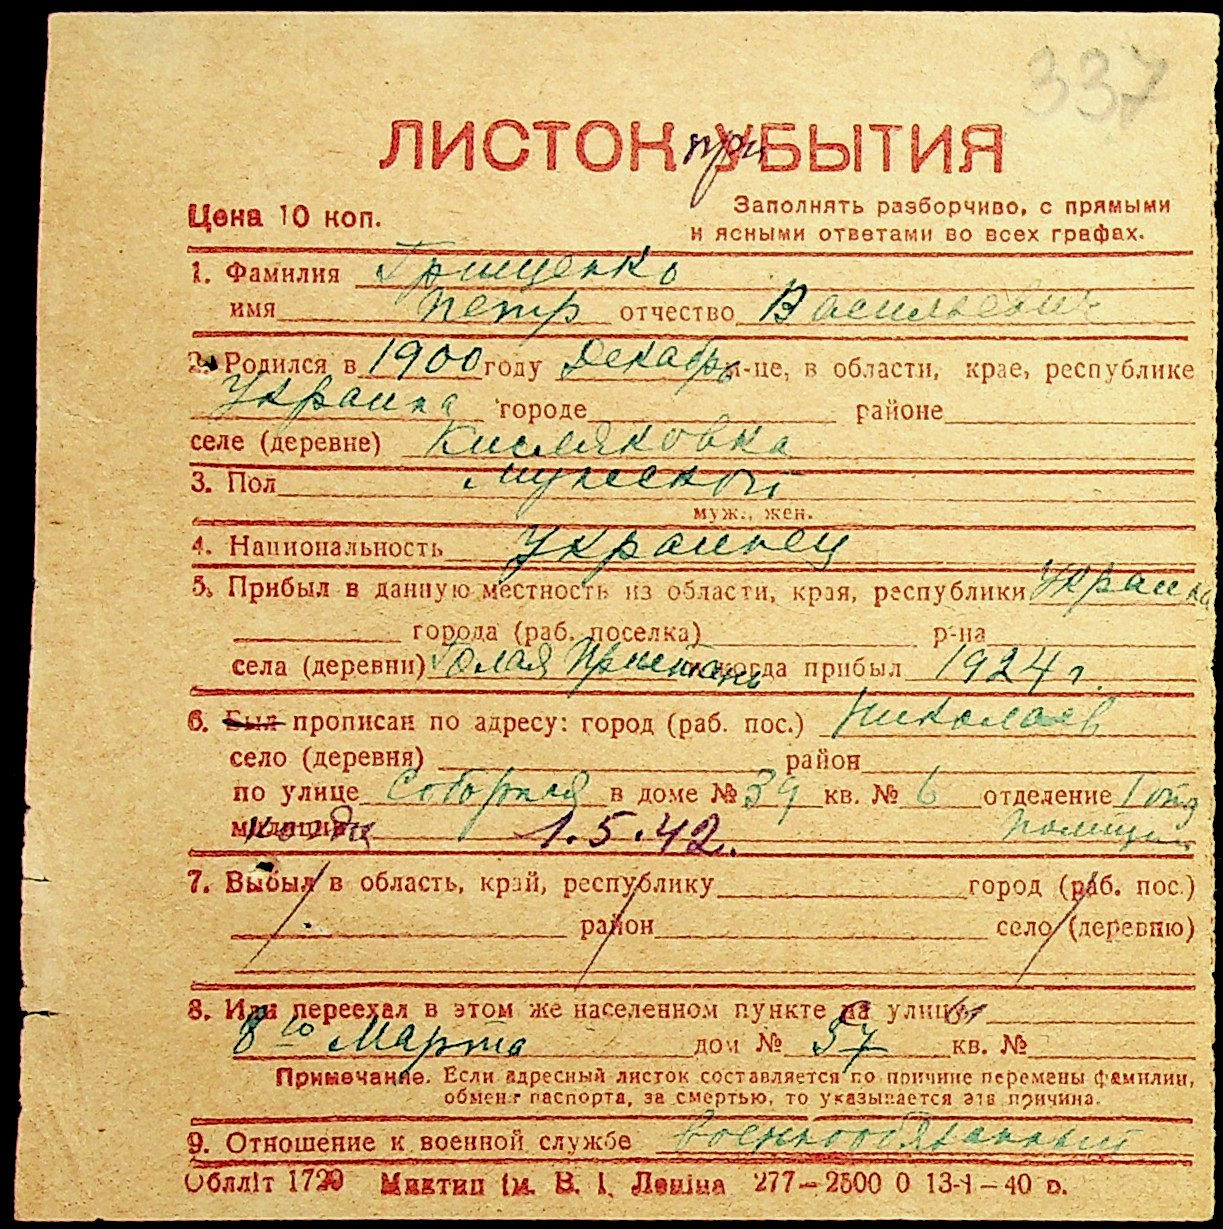 337
ЛИСТОК при УБЫТИЯ
Цена 10 коп.
Заполнять разборчиво, с прямыми
и ясными ответами во всех графах.
1. Фамилия Грищенко
имя Петр отчество Васильевич
2. Родился в 1900 году Декабрь м-це, в области, крае, республике
Украина городе районе
селе (деревне) Кисляковка
3. Пол мужской
муж., жен.
4. Национальность Украинец
5. Прибыл в данную местность из области, края, республики Украина
города (раб. поселка) р-на
села (деревни) Голая Пристань и когда прибыл 1924 г.
6. Был прописан по адресу: город (раб. пос.) Николаев
село (деревня) район
по улице Соборная в доме № 39 кв. № 6 отделение I отд
милиции когда 1.5.42. полиции
7. Выбыл в область, край, республику город (раб. пос.)
район село (деревню)
8. Или переехал в этом же населенном пункте с улицы
8го Марта дом № 57 кв. №
Примечание. Если адресный листок составляется по причине перемены фамилии,
обмена паспорта, за смертью, то указывается эта причина.
9. Отношение к военной службе военнообязанный
Облліт 1729 Миктип ім. В. І. Леніна 277—2500 0 13-1—40 р.